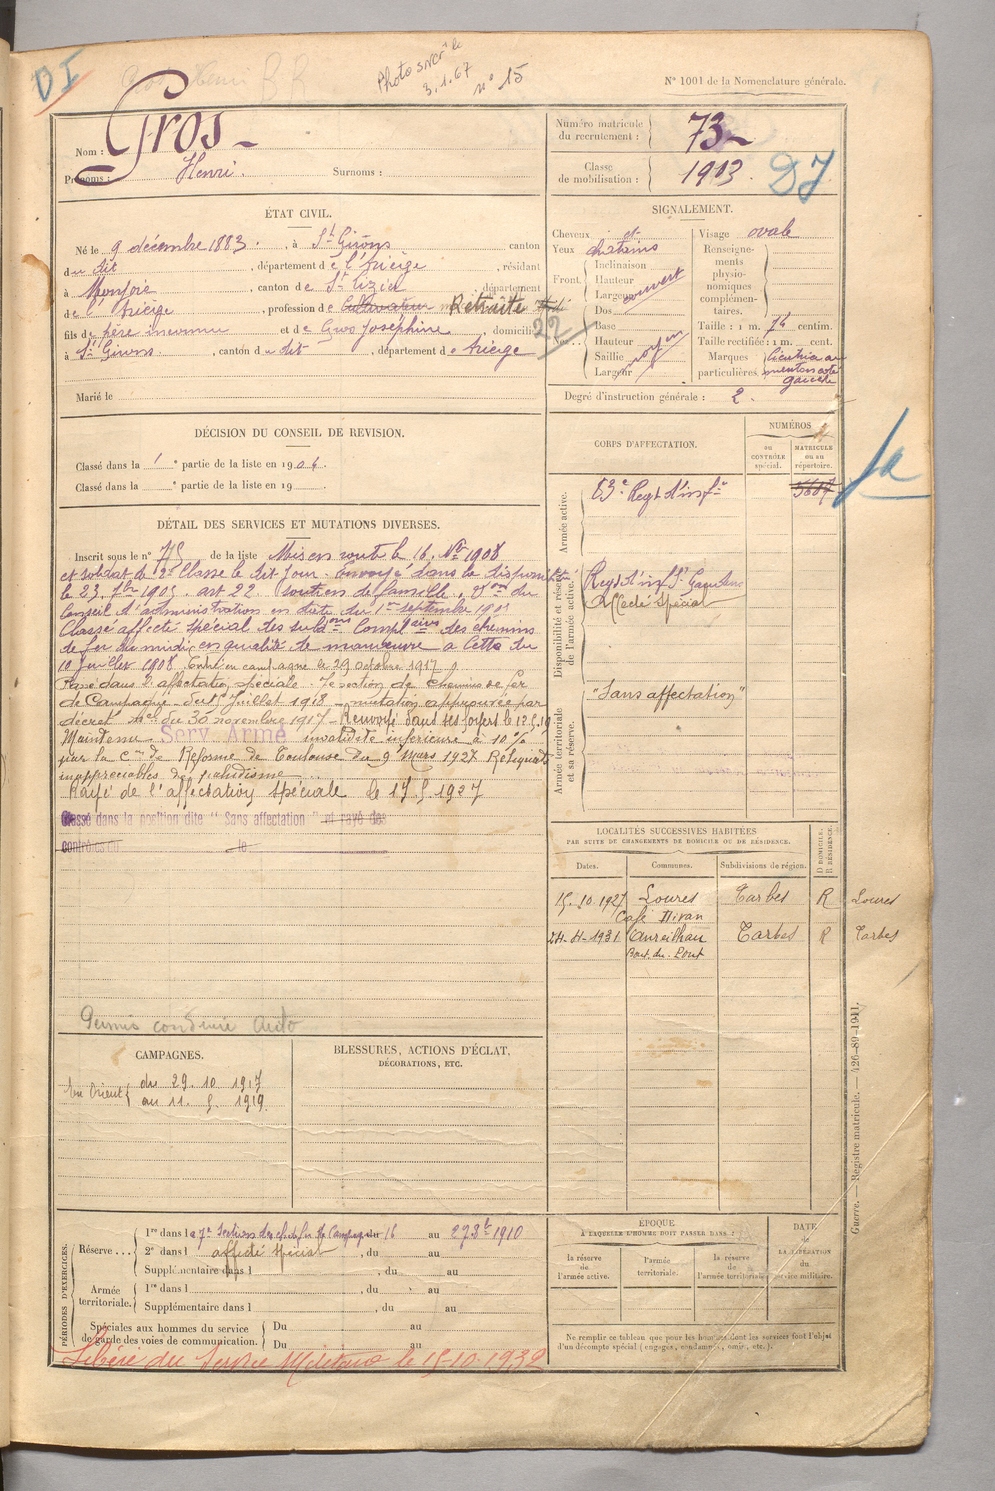 D I
Photo s/ver
3.1.67
n° 15
N° 1001 de la Nomenclature générale.
Nom : Gros
Prénoms : Henri. Surnoms :
Numéro matricule du recrutement : 73
Classe de mobilisation : 1903.
DJ
ÉTAT CIVIL.
Né le 9 décembre 1883, à St Girons canton
du dit, département de l'Ariège, résidant
à Monjoie, canton de St Lizier, département
de l'Ariège, profession de Cultivateur Retraité
fils de père inconnu et de Gros Joséphine, domicilié
22
à St Girons, canton du dit, département d e Ariège
Marié le
SIGNALEMENT.
Cheveux et
Yeux chatains
Front Inclinaison
Hauteur
Largeur
couvert
Nez Dos
Base
Hauteur
Saillie
Largeur
moyen
Visage ovale
Renseigne-
ments
physio-
nomiques
complémen-
taires.
Taille : 1 m. 74 centim.
Taille rectifiée : 1 m. cent.
Marques particulières. Cicatrice au
menton coté
gauche
Degré d'instruction générale : 2.
DÉCISION DU CONSEIL DE REVISION.
Classé dans la 1e partie de la liste en 1904.
Classé dans la e partie de la liste en 19
CORPS D'AFFECTATION.
NUMÉROS
au CONTRÔLE spécial.
MATRICULE ou au répertoire.
Armée active.
83e Regt d'infie
5607
1a
Disponibilité et réserve de l'armée active.
Regt d'inf St Gaudens
Affecté spécial
Armée territoriale et sa réserve.
"Sans affectation"
DÉTAIL DES SERVICES ET MUTATIONS DIVERSES.
Inscrit sous le n° 75 de la liste Mis en route le 16 Nbre 1904
et soldat de 2e Classe le dit jour. Envoyé dans la disponib
le 23 7bre 1905. art 22. soutien de famille,
Conseil d'administration en date du 1er septembre 190
Classé affecté spécial des subdons Complaires des chemins
de fer du midi en qualité de manœuvre à Cette du
10 Juillet 1908. Entré en campagne le 29 octobre 1917
Passé dans l'affectation spéciale 7e section de Chemins de fer
de Campagne du 1er Juillet 1918 mutation approuvée par
décret du 30 novembre 1917 - Renvoyé dans ses foyers le 12.5.19
Maintenu Serv. Armé invalidité inférieure à 10 %
par la Con de Réforme de Toulouse du 9 Mars 1927 Reliquats
inappréciables de paludisme
Rayé de l'affectation spéciale le 15.5.1927
Classé dans la position dite "Sans affectation" et rayé des
contrôles du le
Permis conduire auto
LOCALITÉS SUCCESSIVES HABITÉES
PAR SUITE DE CHANGEMENTS DE DOMICILE OU DE RÉSIDENCE.
Dates. Communes. Subdivisions de région. D DOMICILE. R RÉSIDENCE.
15.10.1927 Loures Tarbes R Loures
Café
24-4-1931 Aureilhan Tarbes R Tarbes
Bout du Pont
CAMPAGNES.
En Orient du 29.10 1917
au 11.5.1919
BLESSURES, ACTIONS D'ÉCLAT,
DÉCORATIONS, ETC.
PÉRIODES D'EXERCICES.
Réserve... 1re dans la 7e Section de ch de fer de Campagne du 16 au 27 8bre 1910
2e dans l affecté spécial, du au
Supplémentaire dans l , du au
Armée territoriale. 1re dans l , du au
Supplémentaire dans l , du au
Spéciales aux hommes du service de garde des voies de communication. Du au
Du au
Libéré du Service Militaire le 15-10-1932
ÉPOQUE
À LAQUELLE L'HOMME DOIT PASSER DANS :
la réserve de l'armée active.
l'armée territoriale.
la réserve de l'armée territoriale.
DATE de LA LIBÉRATION du service militaire.
Ne remplir ce tableau que pour les hommes dont les services font l'objet
d'un décompte spécial (engagés, condamnés, omis, etc.).
Guerre. — Registre matricule. — 426-89-1941.